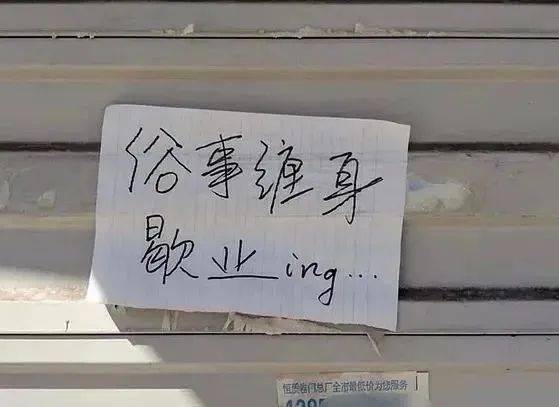 俗事缠身
歇业ing...
恒质卷闸总厂全市最低价为您服务